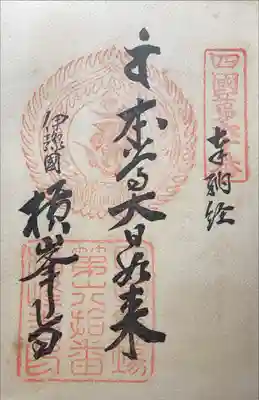 奉納経
本尊大日如来
伊豫國
横峯寺
四國第
第六拾番
場